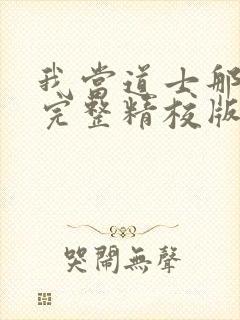 我當道士那
完整精校版
哭鬧無聲